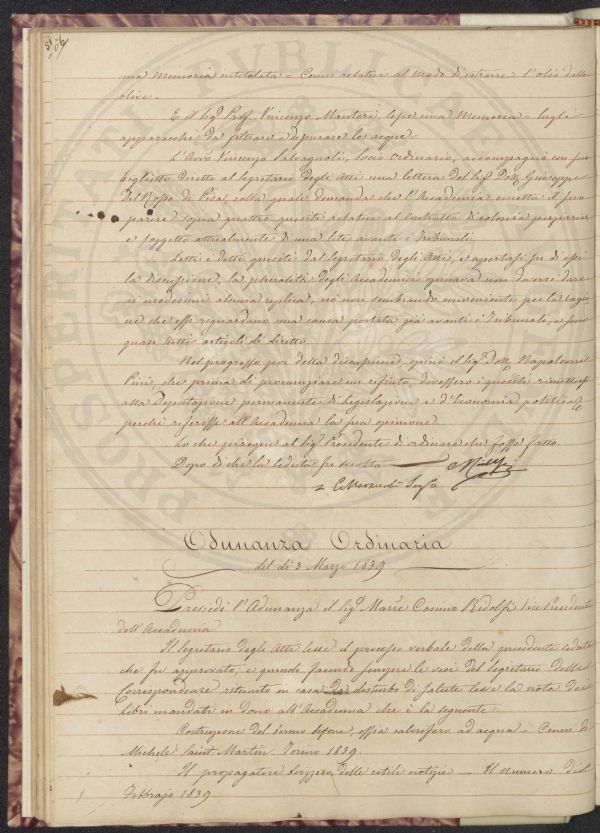 una Memoria intitolata = Cenni relativi al Modo d'estrarre l'olio dalle
olive.
E il Sig.r Prof. Vincenzo Manteri lesse una Memoria = Sugli
apparecchi da filtrare e depurare le acque =
L'Avv.o Vincenzo Salvagnoli, Socio ordinario, accompagnò con suo
biglietto diretto al Segretario degli Atti una lettera del Sig.r Dott. Giuseppe
Del Rosso di Pisa, colla quale domanda che l'Accademia emetta il suo
parere sopra quattro quesiti relativi al Contratto di colonia parziaria,
e soggetto attualmente di una lite avanti i Tribunali.
Letti i detti quesiti dal Segretario degli Atti, e apertasi su di essi
la discussione, la pluralità degli Accademici opinava non doversi dare
ai medesimi alcuna replica, ciò non sembrando conveniente per la ragio-
ne che essi riguardano una causa portata già avanti i Tribunali, e sono
quasi tutti articoli di diritto.
Nel progresso poi della discussione, opinò il Sig.r Dott. Napoleone
Pini, che prima di pronunziare un rifiuto, dovessero i quesiti rimettersi
alla Deputazione permanente di Legislazione e d'Economia politica,
perchè riferisse all'Accademia la sua opinione.
Lo che piacque al Sig.r Presidente di ordinare che fosse fatto.
Dopo di che la seduta fu sciolta
= C. Marzucchi Seg.o
Adunanza Ordinaria
del dì 3 Marzo 1839
Presiedè l'Adunanza il Sig.r March.e Cosimo Ridolfi Vice Presidente
dell'Accademia
Il Segretario degli Atti lesse il processo verbale della precedente seduta
che fu approvato, e quindi facendo sempre le veci del Segretario delle
Corrispondenze ritenuto in casa da disturbo di salute lesse la nota dei
Libri mandati in dono all'Accademia che è la seguente.
Costruzione del termo sifone, ossia calorifero ad acqua = Cenni di
Michele Saint Martin Torino 1839.
Il propagatore Svizzero delle utili notizie = Il numero del
Febbrajo 1839